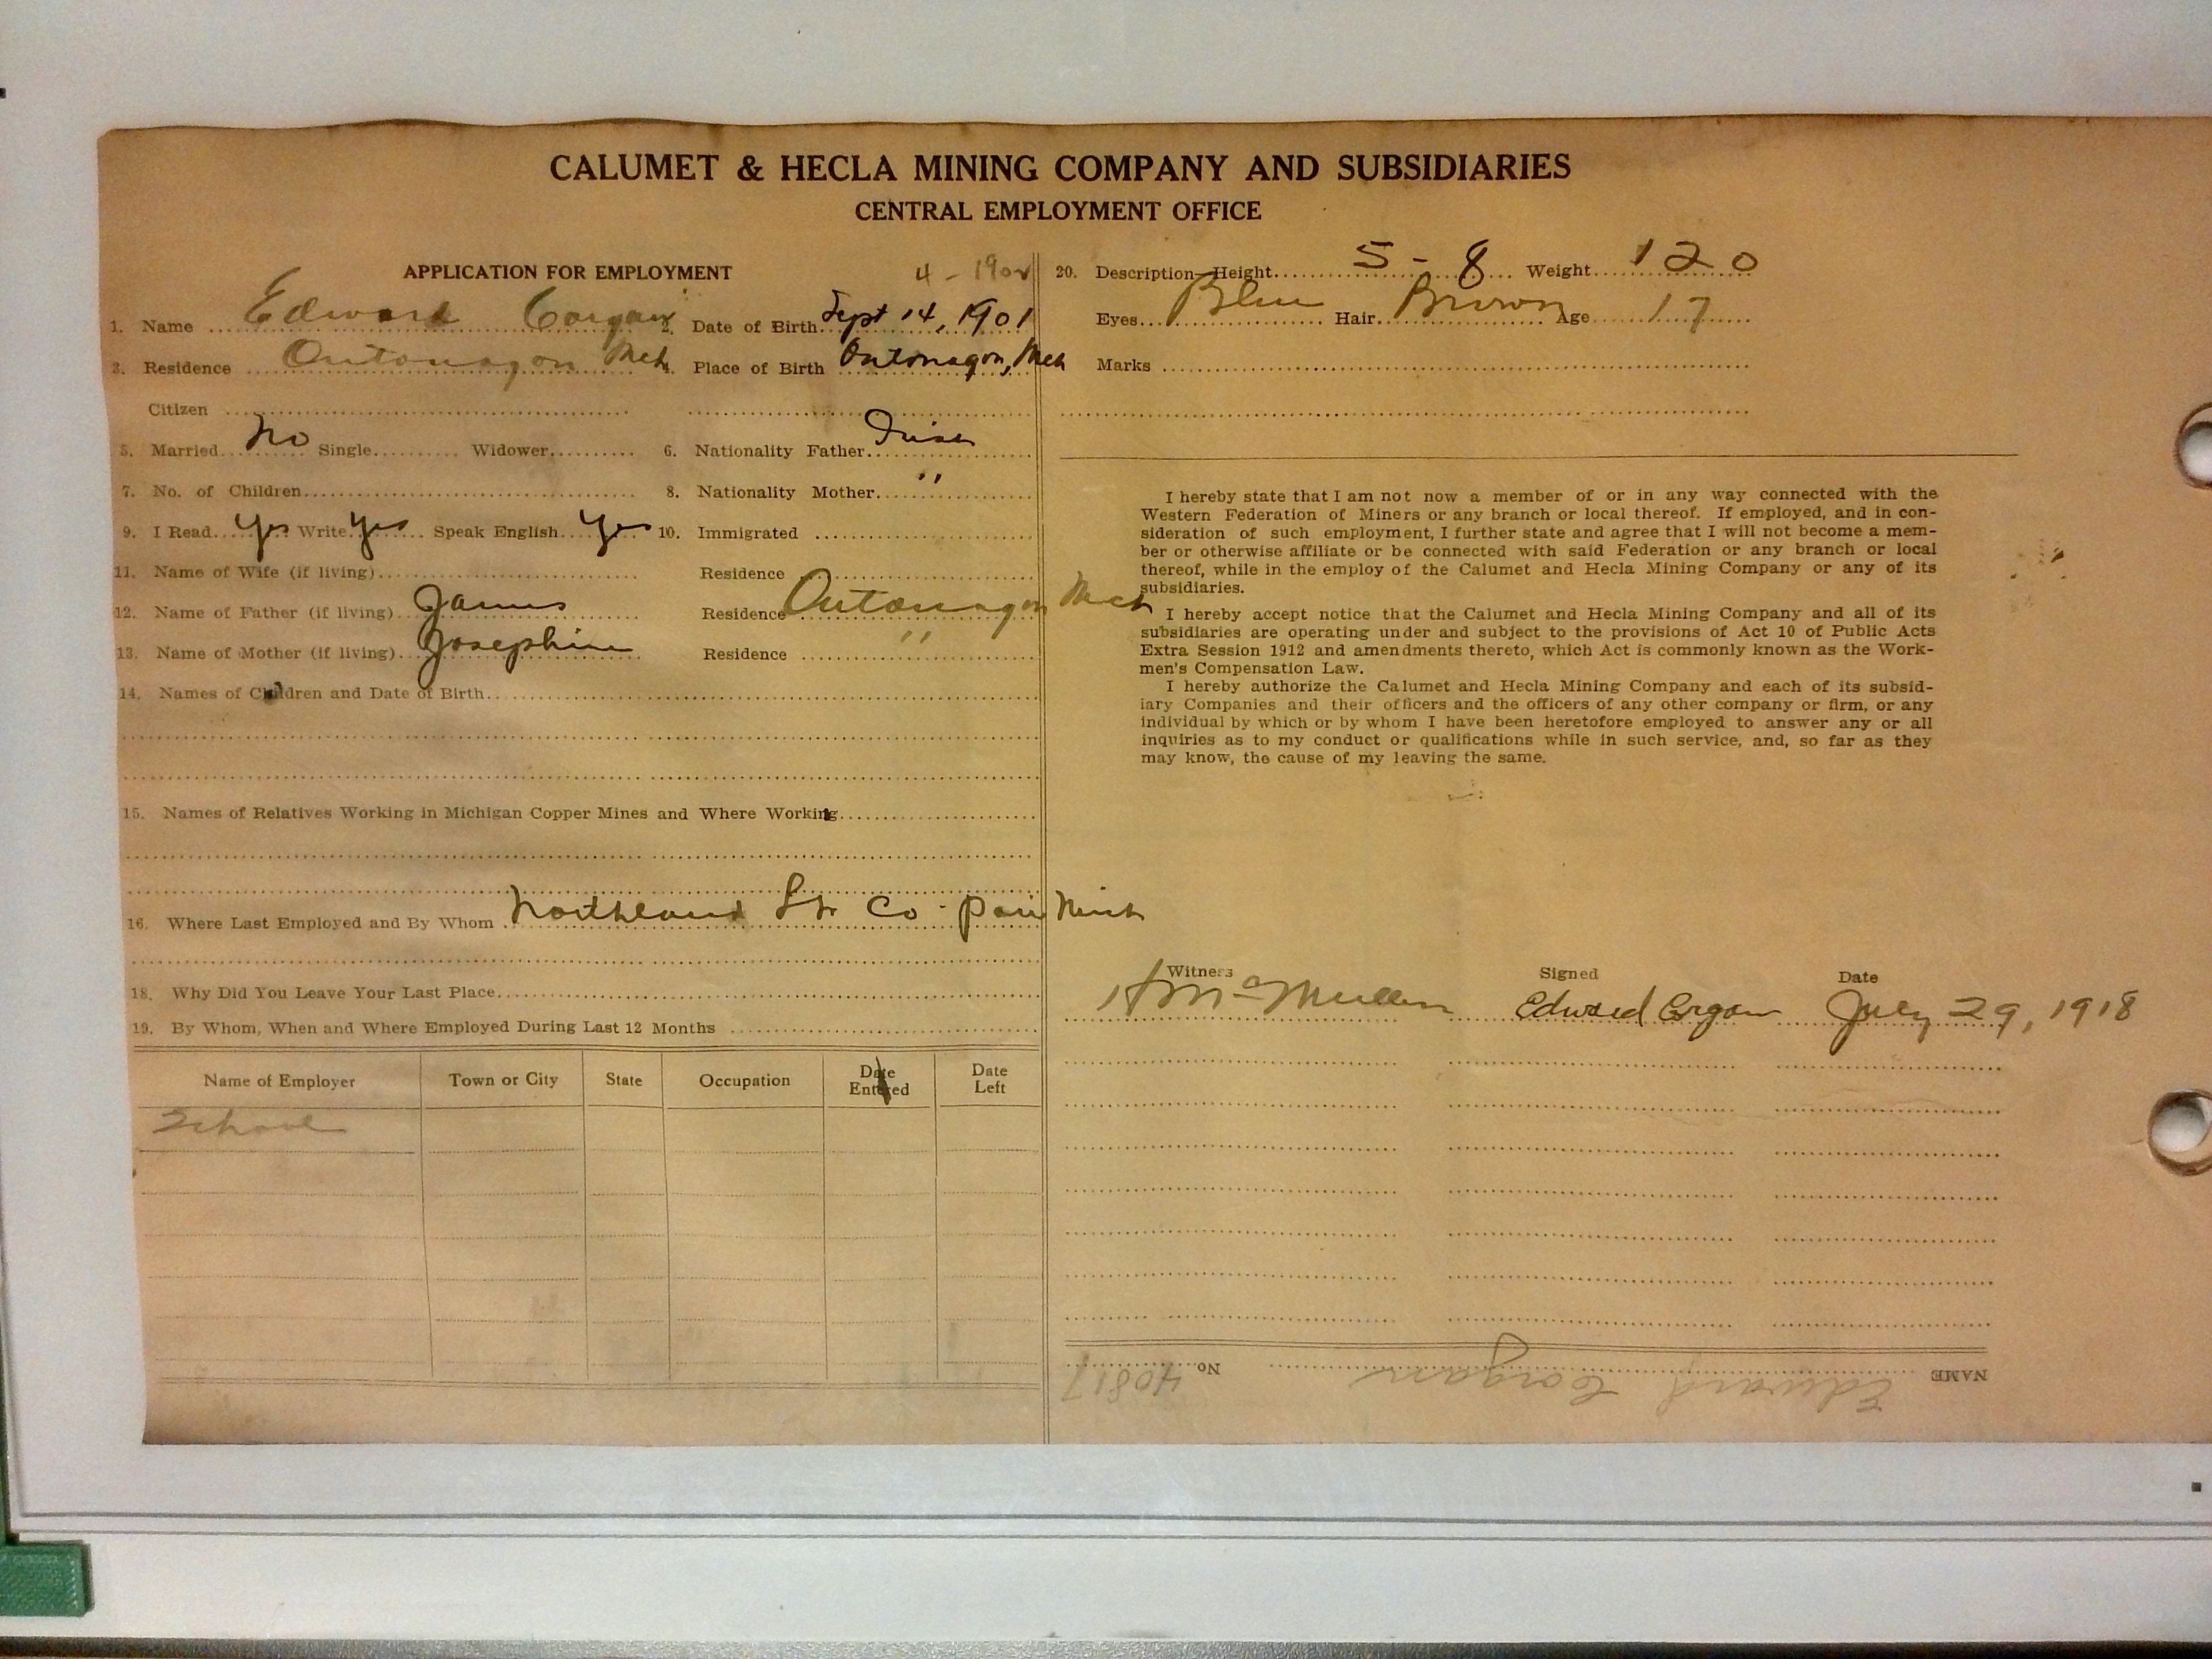 CALUMET & HECLA MINING COMPANY AND SUBSIDIARIES
CENTRAL EMPLOYMENT OFFICE
APPLICATION FOR EMPLOYMENT
4 - 1902
1. Name Edward Corgan
2. Date of Birth Sept 14, 1901
3. Residence Ontonagon Mch
4. Place of Birth Ontonagon, Mch
Citizen
5. Married No Single Widower
6. Nationality Father Irish
7. No. of Children
8. Nationality Mother "
9. I Read Yes Write Yes Speak English Yes
10. Immigrated
11. Name of Wife (if living)
Residence
12. Name of Father (if living) James
Residence Ontonagon Mch
13. Name of Mother (if living) Josephine
Residence "
14. Names of Children and Date of Birth
15. Names of Relatives Working in Michigan Copper Mines and Where Working
16. Where Last Employed and By Whom Northland Co - Mich
18. Why Did You Leave Your Last Place
19. By Whom, When and Where Employed During Last 12 Months
Name of Employer Town or City State Occupation Date Entered Date Left
School
20. Description—Height 5 - 8 Weight 120
Eyes Blue Hair Brown Age 17
Marks
I hereby state that I am not now a member of or in any way connected with the
Western Federation of Miners or any branch or local thereof. If employed, and in con-
sideration of such employment, I further state and agree that I will not become a mem-
ber or otherwise affiliate or be connected with said Federation or any branch or local
thereof, while in the employ of the Calumet and Hecla Mining Company or any of its
subsidiaries.
I hereby accept notice that the Calumet and Hecla Mining Company and all of its
subsidiaries are operating under and subject to the provisions of Act 10 of Public Acts
Extra Session 1912 and amendments thereto, which Act is commonly known as the Work-
men's Compensation Law.
I hereby authorize the Calumet and Hecla Mining Company and each of its subsid-
iary Companies and their officers and the officers of any other company or firm, or any
individual by which or by whom I have been heretofore employed to answer any or all
inquiries as to my conduct or qualifications while in such service, and, so far as they
may know, the cause of my leaving the same.
Witness Signed Date
H McMullen Edward Corgan July 29, 1918
NAME Edward Corgan No. 40817